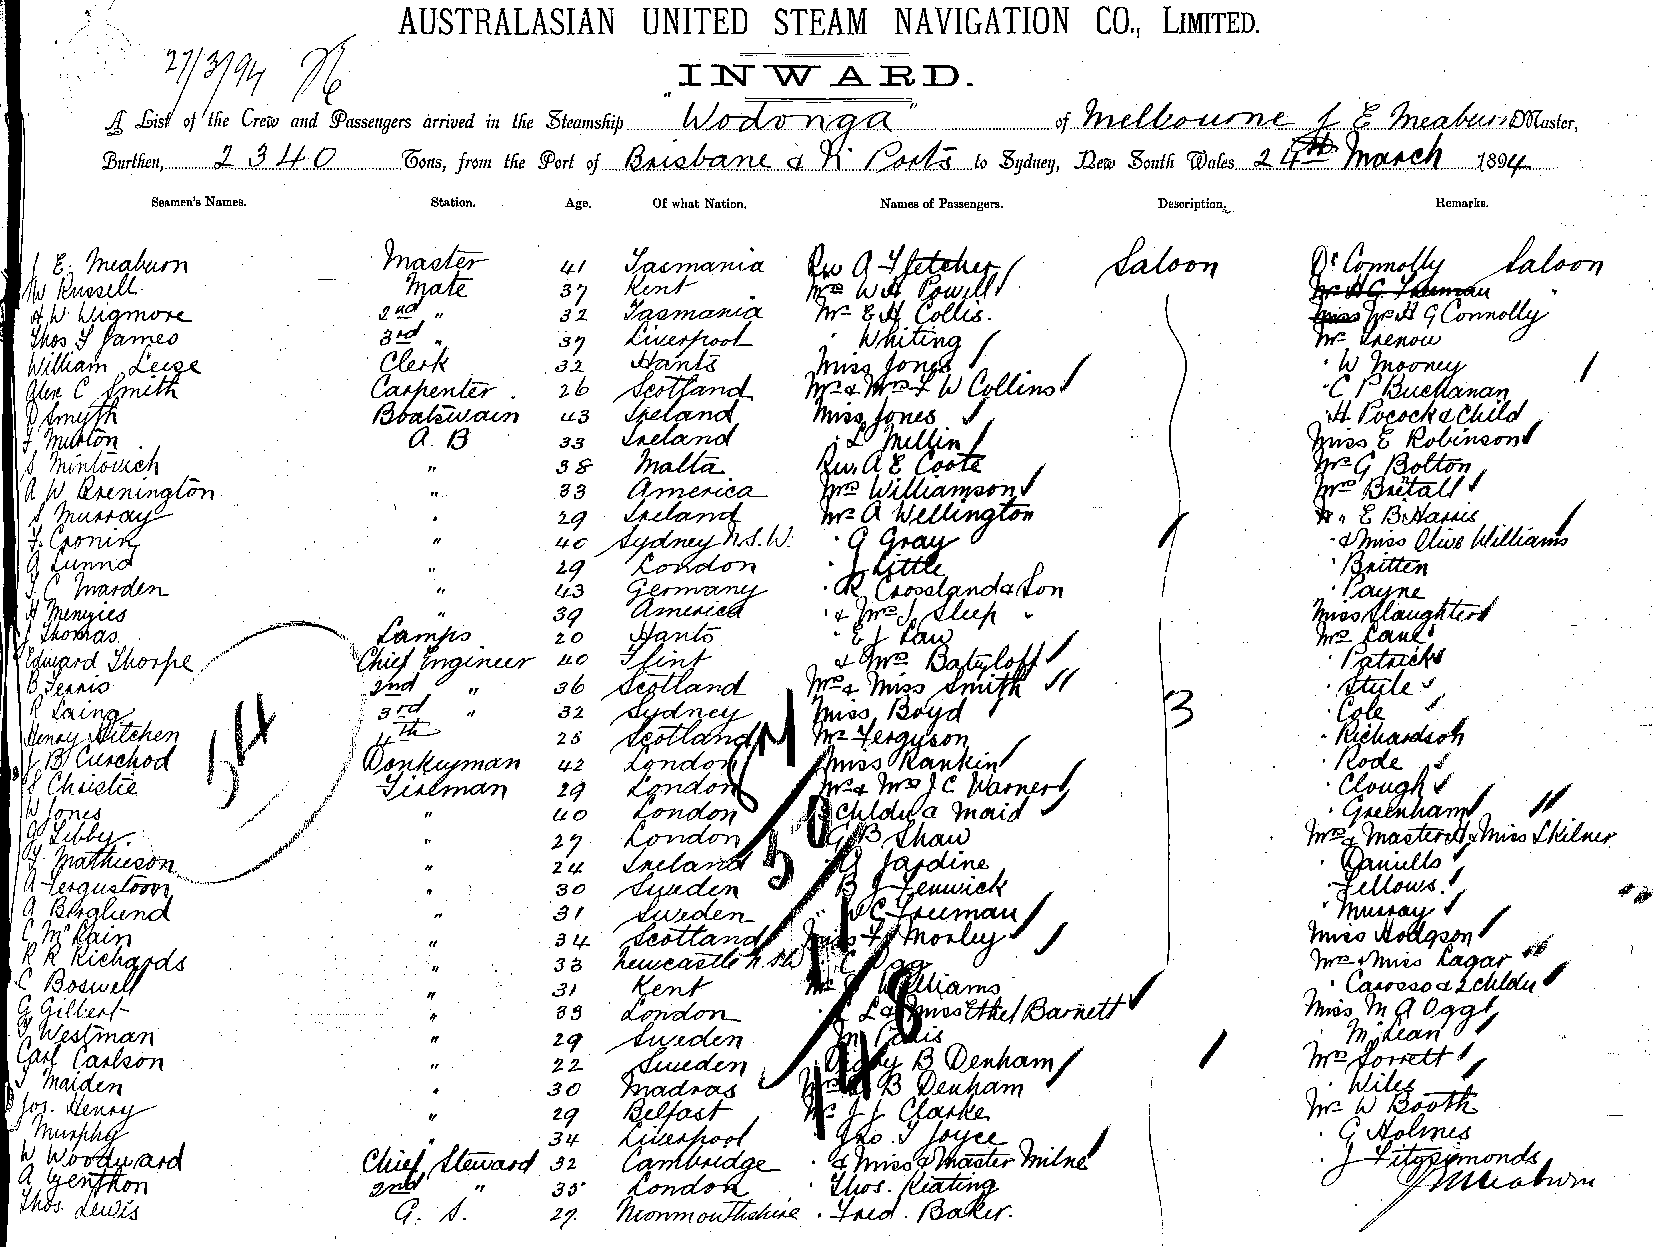 AUSTRALASIAN UNITED STEAM NAVIGATION CO., LIMITED.
27/3/94
INWARD.
A List of the Crew and Passengers arrived in the Steamship "Wodonga" of Melbourne J E Meaburn Master,
Burthen, 2340 Tons, from the Port of Brisbane & N. Ports to Sydney, New South Wales 24th March 1894
Seamen's Names. Station. Age. Of what Nation. Names of Passengers. Description. Remarks.
J E. Meaburn Master 41 Tasmania Rev A Fletcher Saloon Dr Connolly Saloon
W Russell Mate 37 Kent Mrs W H Powell Mr H G Freeman "
A W Wigmore 2nd " 32 Tasmania Mr E H Collis. Miss Mr H G Connolly
Thos J James 3rd " 37 Liverpool " Whiting Mr Trenow
William Leese Clerk 32 Hants Miss Jones " W Mooney
Alex C Smith Carpenter 26 Scotland Mr & Mrs F W Collins " C P Buchanan
Smyth Boatswain 43 Ireland Miss Jones " H Pocock & Child
F Murton A. B 33 Ireland " L Millin Miss E Robinson
S Mintovich " 38 Malta Rev. A E Coote Mr G Bolton
A W Brenington " 33 America Mrs Williamson Mrs Britall
S Murray " 29 Ireland Mr A Wellington " E B Harris
F. Cronin " 40 Sydney N.S.W. " G Gray " & Miss Olive Williams
G Lunno " 29 London " J Little " Britten
J C Marden " 43 Germany " R Crossland & Son " Payne
H Menzies " 39 America " & Mrs J Sleep " Miss Slaughter
J Thomas Lamps 20 Hants " E J Law Mrs Lane
Edward Thorpe Chief Engineer 40 Flint " & Mrs Batyloff " Patricks
B Ferris 2nd " 36 Scotland Mrs & Miss Smith " Stule
R Laing 3rd " 32 Sydney Miss Boyd 3 " Cole
Henry Hitchen 4th 25 Scotland Mr Ferguson " Richardson
54
J B Curchod Donkeyman 42 London Miss Rankin " Rode
S Christie Fireman 29 London Mr & Mrs J C Warner " Clough
W Jones " 40 London Childn & Maid " Greenham
G Libby " 27 London G B Shaw Mrs & Master H & Miss Skilner
J Mathieson " 24 Ireland Jardine " Daniells
A Fergustoon " 30 Sweden B J Fenwick " Fellows.
A Berglund " 31 Sweden " C Freeman " Murray
C McKain " 34 Scotland Miss F Morley Miss Hodgson
R R Richards " 33 Newcastle N.S.W Mrs & Miss Lagar
C Boswell " 31 Kent Mr Williams " Carosso & 2 childn
G Gilbert " 33 London " L & Miss Ethel Barnett Miss M A Ogg
J Westman " 29 Sweden " McLean
Carl Carlson " 22 Sweden Digby B Denham Mrs Forrett
J Maiden " 30 Madras Mrs B Denham " Wiles
Jos. Henry " 29 Belfast Mr J J Clarke Mr W Booth
J Murphy " 34 Liverpool " Jno. T Joyce " G Holmes
W Woodward Chief Steward 32 Cambridge " & Miss & Master Milne " J Fitzsimonds
A Genthon 2nd " 35 London " Thos. Keating J E Meaburn
Thos. Lewis G. S. 27. Monmouthshire " Fred. Baker.